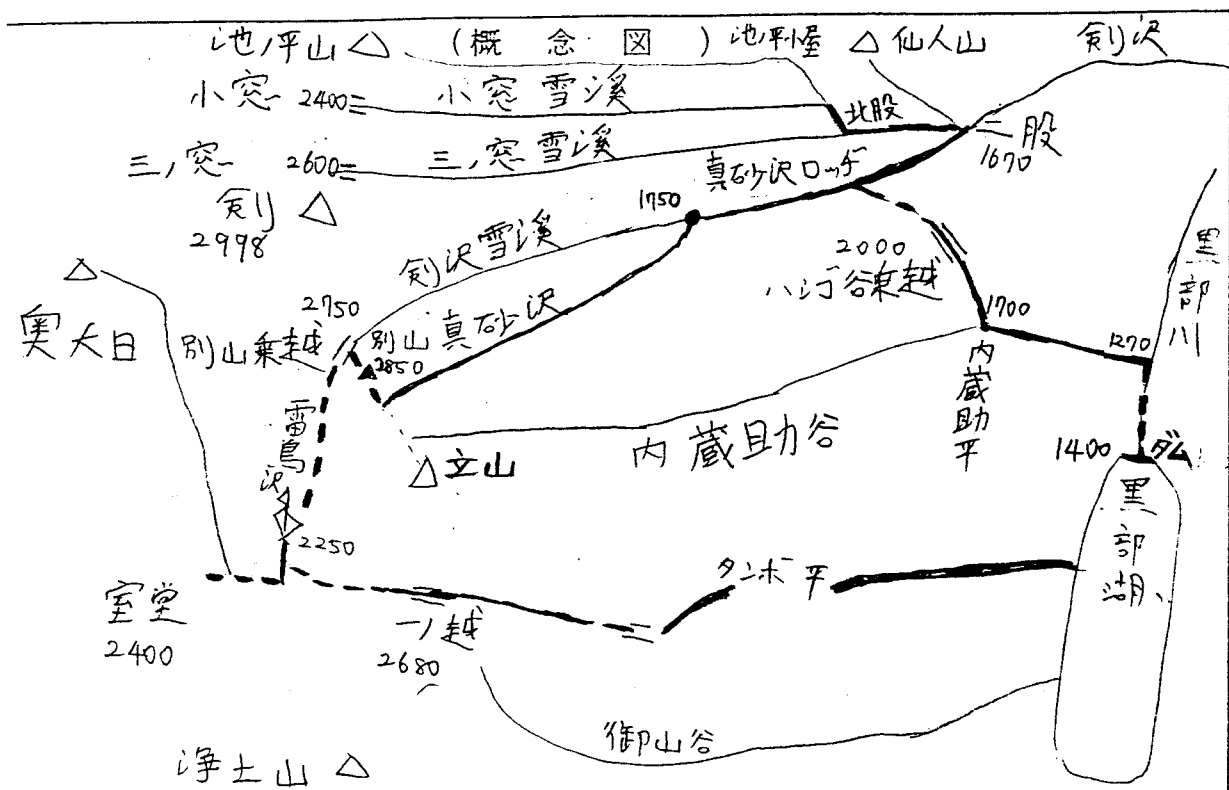 池ノ平山 (概念図) 池ノ平小屋 仙人山 剣沢
小窓 2400 小窓雪渓 北股
二股
1670
三ノ窓 2600 三ノ窓雪渓
真砂沢ロッヂ
剣
2998
1750
剣沢雪渓
2000
ハシゴ谷乗越
黒部川
奥大日
2750
別山乗越
別山
2850
真砂沢
1700
1270
内蔵助平
雷鳥沢
立山
内蔵助谷
1400 ダム
黒部湖
2250
タンボ平
室堂
2400
一ノ越
2680
御山谷
浄土山